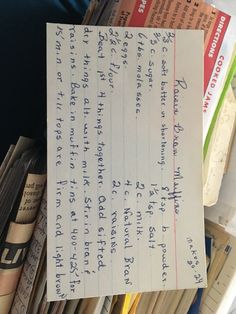 Raisin Bran Muffins
makes 20-24
2/3 c. soft butter or shortening
8 tsp b. powder
3/4 c. sugar.
1 1/2 tsp. salt
6 tbs. molasses.
2 c. milk
2 eggs.
4 c. Natural Bran
2 1/2 c. flour.
2 c raisins
Beat 1st 4 things together. Add sifted
dry things alt. with milk. Stir in bran &
raisins. Bake in muffin tins at 400-425° for
15 min or till tops are firm and light brown
DIRECTIONS